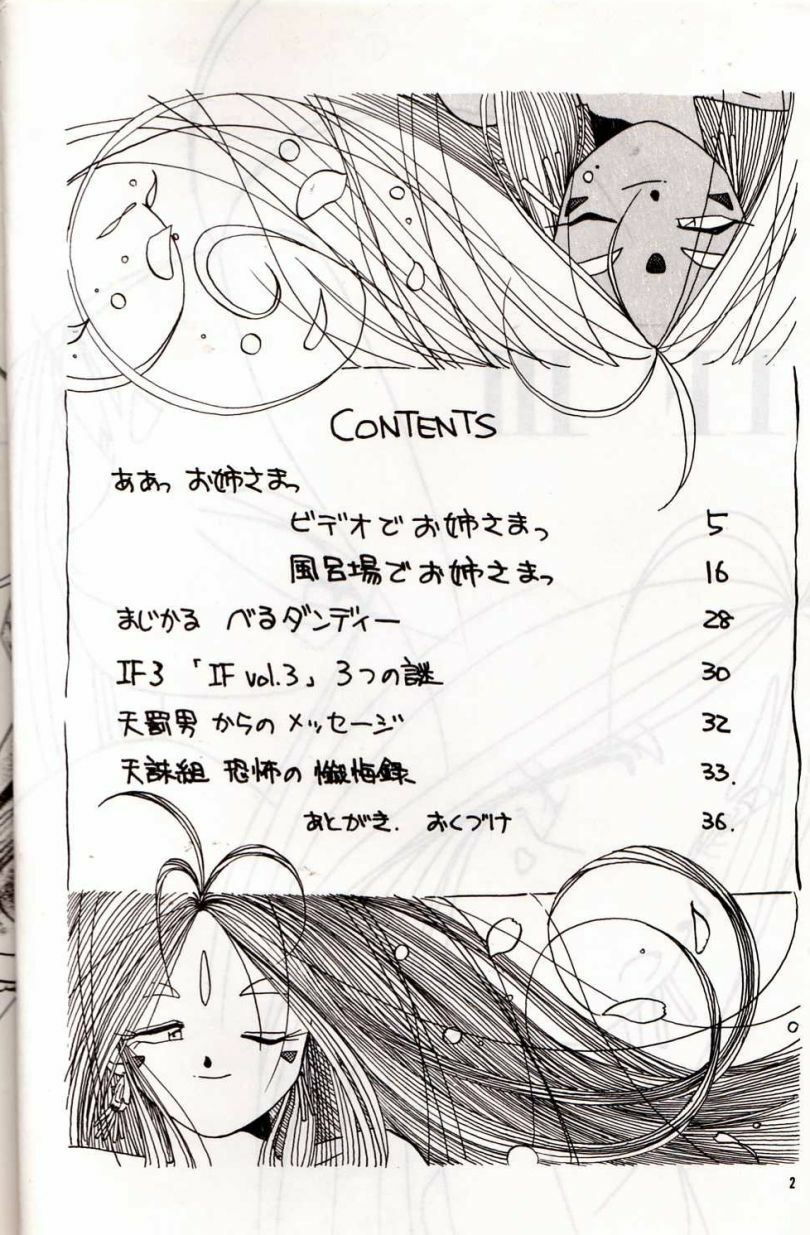 CONTENTS
ああっ お姉さまっ
ビデオで お姉さまっ 5
風呂場で お姉さまっ 16
まじかる べるダンディー 28
IF3 「IF vol.3」 3つの謎 30
天罰男 からの メッセージ 32
天誅組 恐怖の 懺悔録 33.
あとがき. おくづけ 36.
2